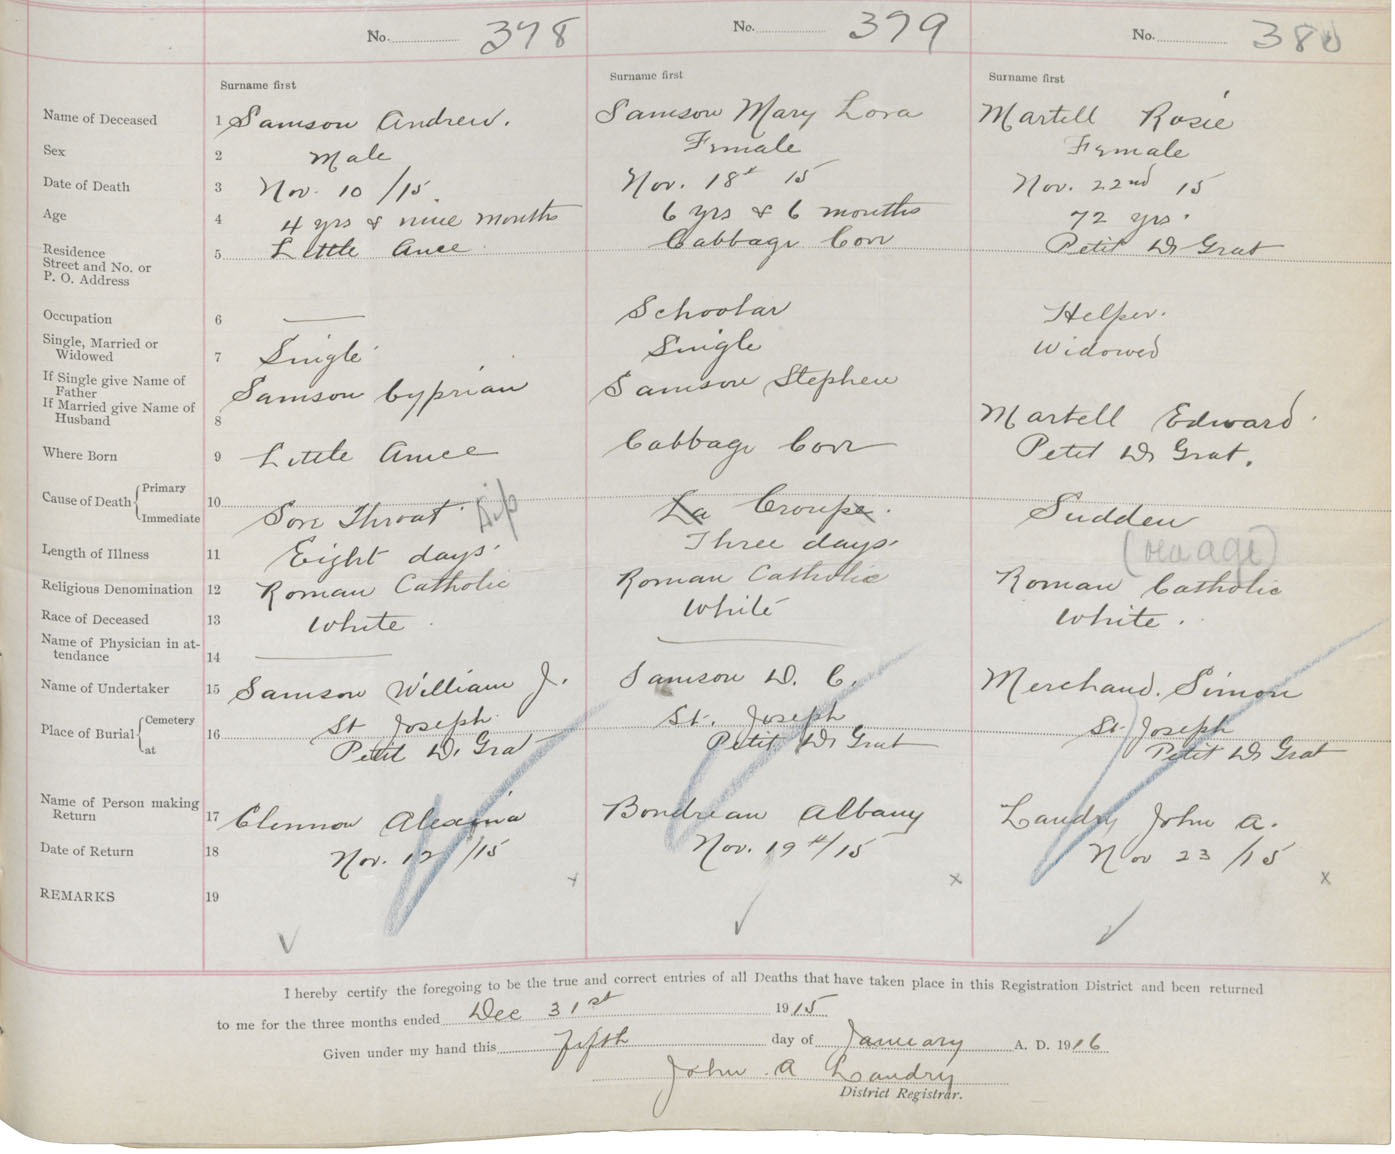 No. 378 No. 379 No. 380
Surname first Surname first Surname first
Name of Deceased 1 Samson Andrew. Samson Mary Lora Martell Rosie
Sex 2 Male Female Female
Date of Death 3 Nov. 10 /15 Nov. 18st 15 Nov. 22nd 15
Age 4 4 yrs & nine months 6 yrs & 6 months 72 yrs.
Residence
Street and No. or
P. O. Address 5 Little Ance Cabbage Cove Petit D Grat
Occupation 6 — Schoolar Helper.
Single, Married or
Widowed 7 Single Single Widowed
If Single give Name of
Father Samson Cyprian Samson Stephen
If Married give Name of
Husband 8 Martell Edward.
Where Born 9 Little Ance Cabbage Cove Petit D Grat.
Cause of Death { Primary
Immediate 10 Sore Throat Dip La Croupe. Sudden
(old age)
Length of Illness 11 Eight days. Three days.
Religious Denomination 12 Roman Catholic Roman Catholic Roman Catholic
Race of Deceased 13 White White White.
Name of Physician in at-
tendance 14 —
Name of Undertaker 15 Samson William J. Samson D. C. Merchand. Simon
Place of Burial { Cemetery
at 16 St Joseph St. Joseph St. Joseph
Petit D. Grat Petit D Grat Petit D Grat
Name of Person making
Return 17 Alexina Boudreau Albany Landry John A.
Date of Return 18 Nov. 12 /15 Nov. 19th/15 Nov 23 /15
x x x
REMARKS 19
I hereby certify the foregoing to be the true and correct entries of all Deaths that have taken place in this Registration District and been returned
to me for the three months ended Dec 31st 1915
Given under my hand this fifth day of January A. D. 1916
John A Landry
District Registrar.